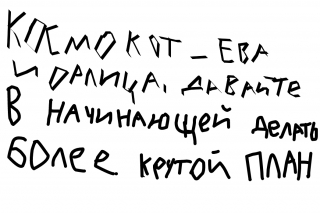 КОСМОКОТ – ЕВА
И ОРЛИЦА, ДАВАЙТЕ
В НАЧИНАЮЩЕЙ ДЕЛАТЬ
БОЛЕЕ КРУТОЙ ПЛАН